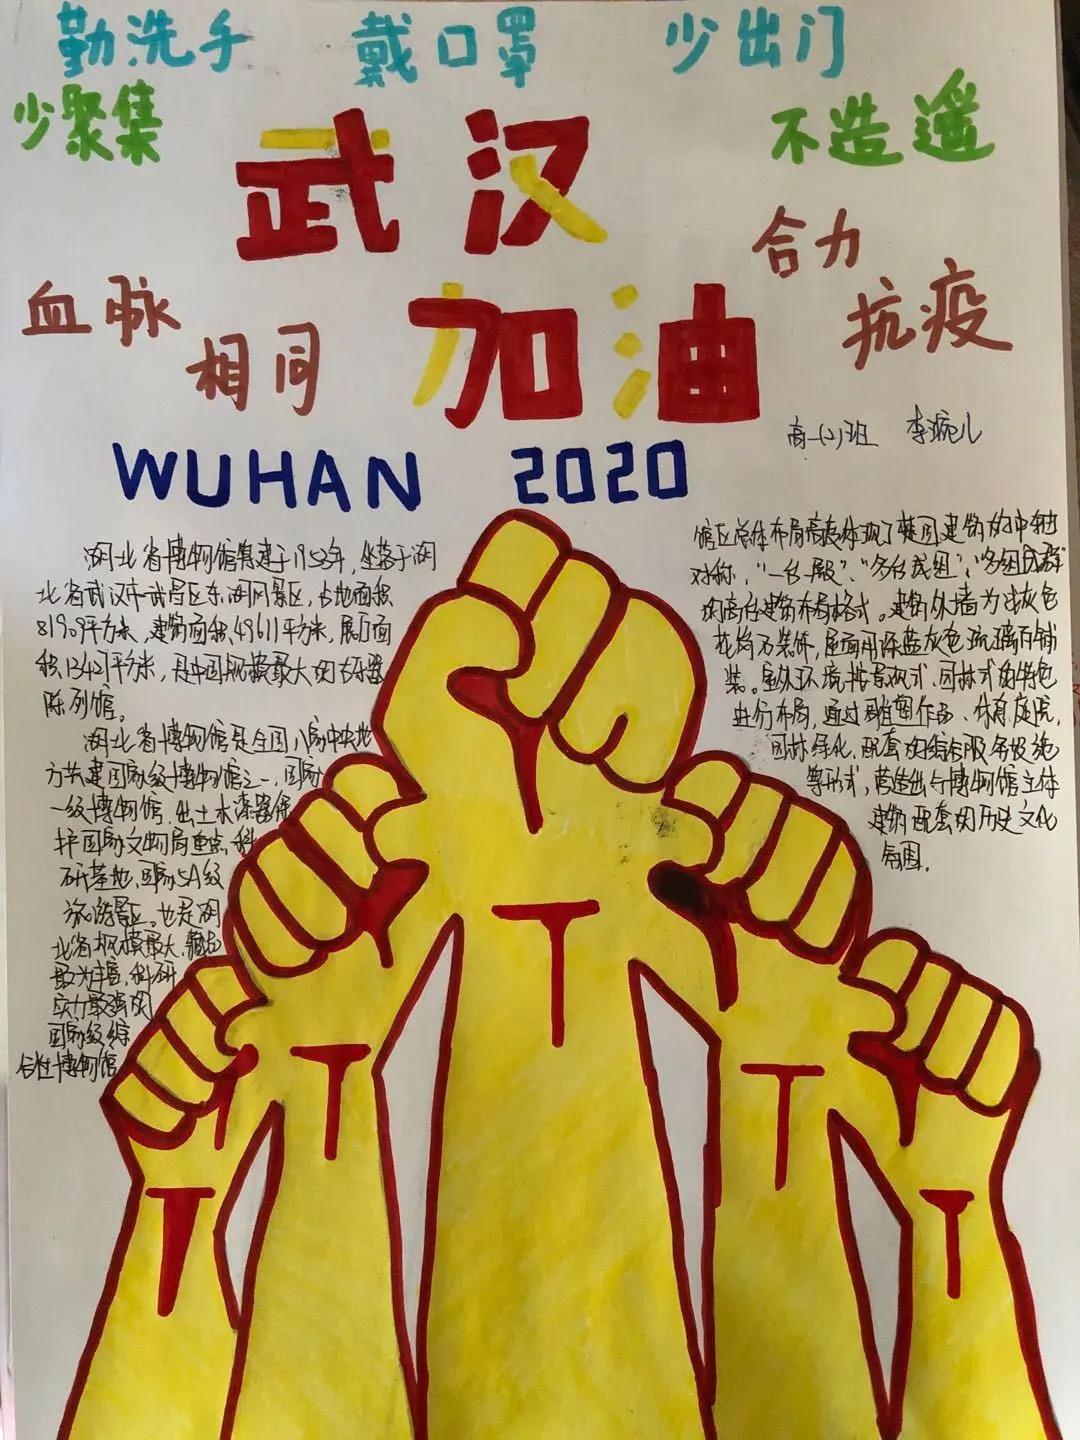 勤洗手 戴口罩 少出门
少聚集 不造遥
武汉
合力
血脉
加油
抗疫
相同
高一(2)班 李婉儿
WUHAN 2020
湖北省博物馆筹建于1953年，坐落于湖
北省武汉市武昌区东湖风景区，占地面积
81909平方米，建筑面积49611平方米，展厅面
积13427平方米，是中国规模最大的古乐器
陈列馆。
湖北省博物馆是全国八家中央地
方共建国家级博物馆之一，国家
一级博物馆，出土木漆器保
护国家文物局重点科
研基地，国家5A级
旅游景区。也是湖
北省规模最大，藏品
最为丰富，科研
实力最强的
国家级综
合性博物馆
馆区总体布局高度体现了楚国建筑的中轴
对称，“一台一殿”、“多台成组”、“多组成群”
的高台建筑布局格式。建筑外墙为浅灰色
花岗石装饰，屋面用深蓝灰色琉璃瓦铺
装。室外环境按景观式、园林式的特色
进行布局，通过雕塑作品、休息庭院，
园林绿化，配套的综合服务设施
等形式，营造出与博物馆主体
建筑配套的历史文化
氛围。